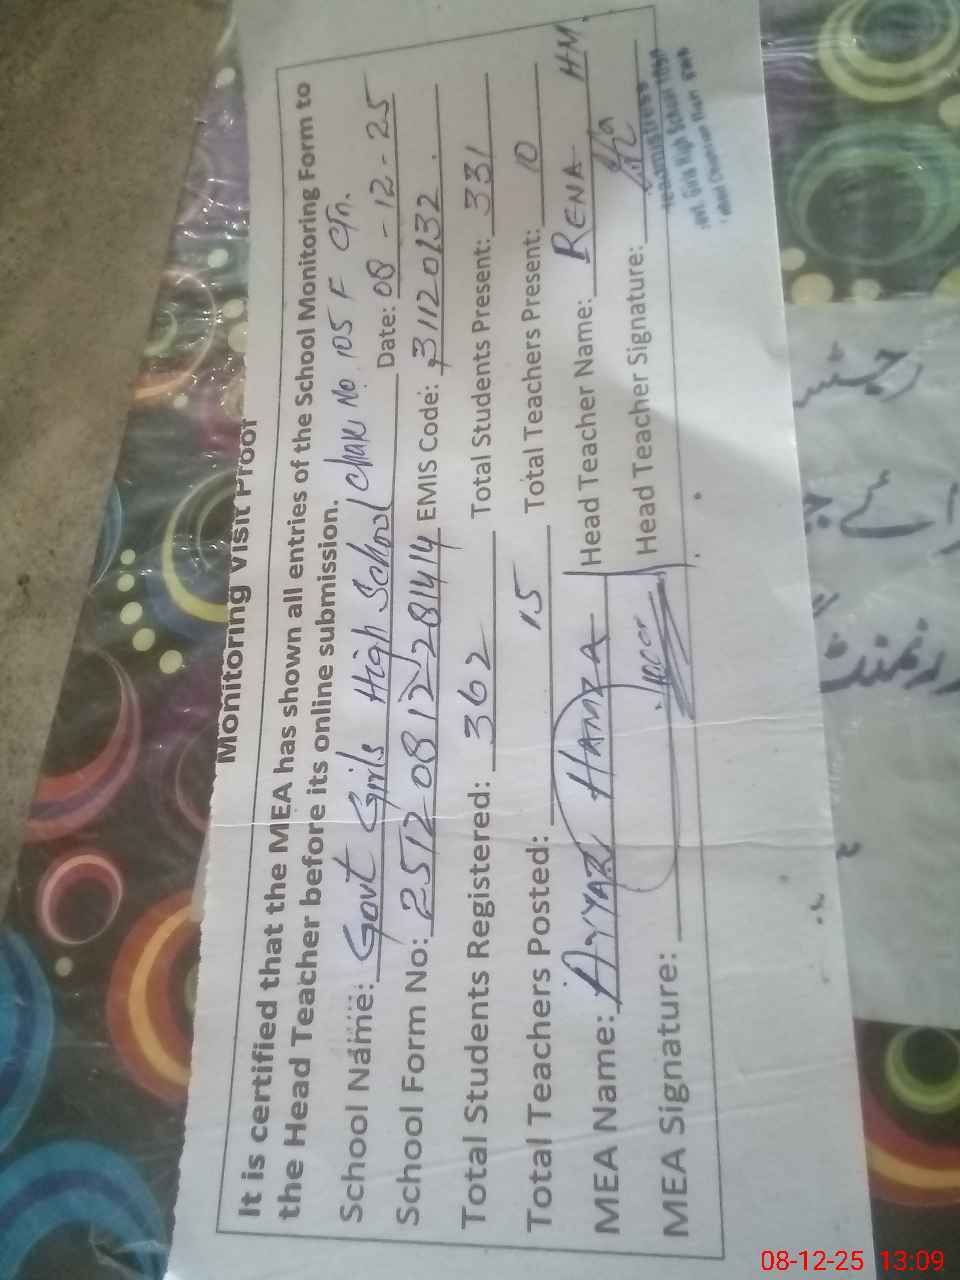 Monitoring Visit Proof
It is certified that the MEA has shown all entries of the School Monitoring Form to
the Head Teacher before its online submission.
School Name: Govt Girls High School Chak No. 105 F Ctn.
Date: 08-12-25
School Form No: 2512-08122281414 EMIS Code: 31120132
Total Students Registered: 362 Total Students Present: 331
Total Teachers Posted: 15 Total Teachers Present: 10
MEA Name: AYYAZ HAMZA Head Teacher Name: RENA HM
MEA Signature: Head Teacher Signature:
Headmistress
Govt. Girls High School
رجسٹر
ائے
08-12-25 13:09